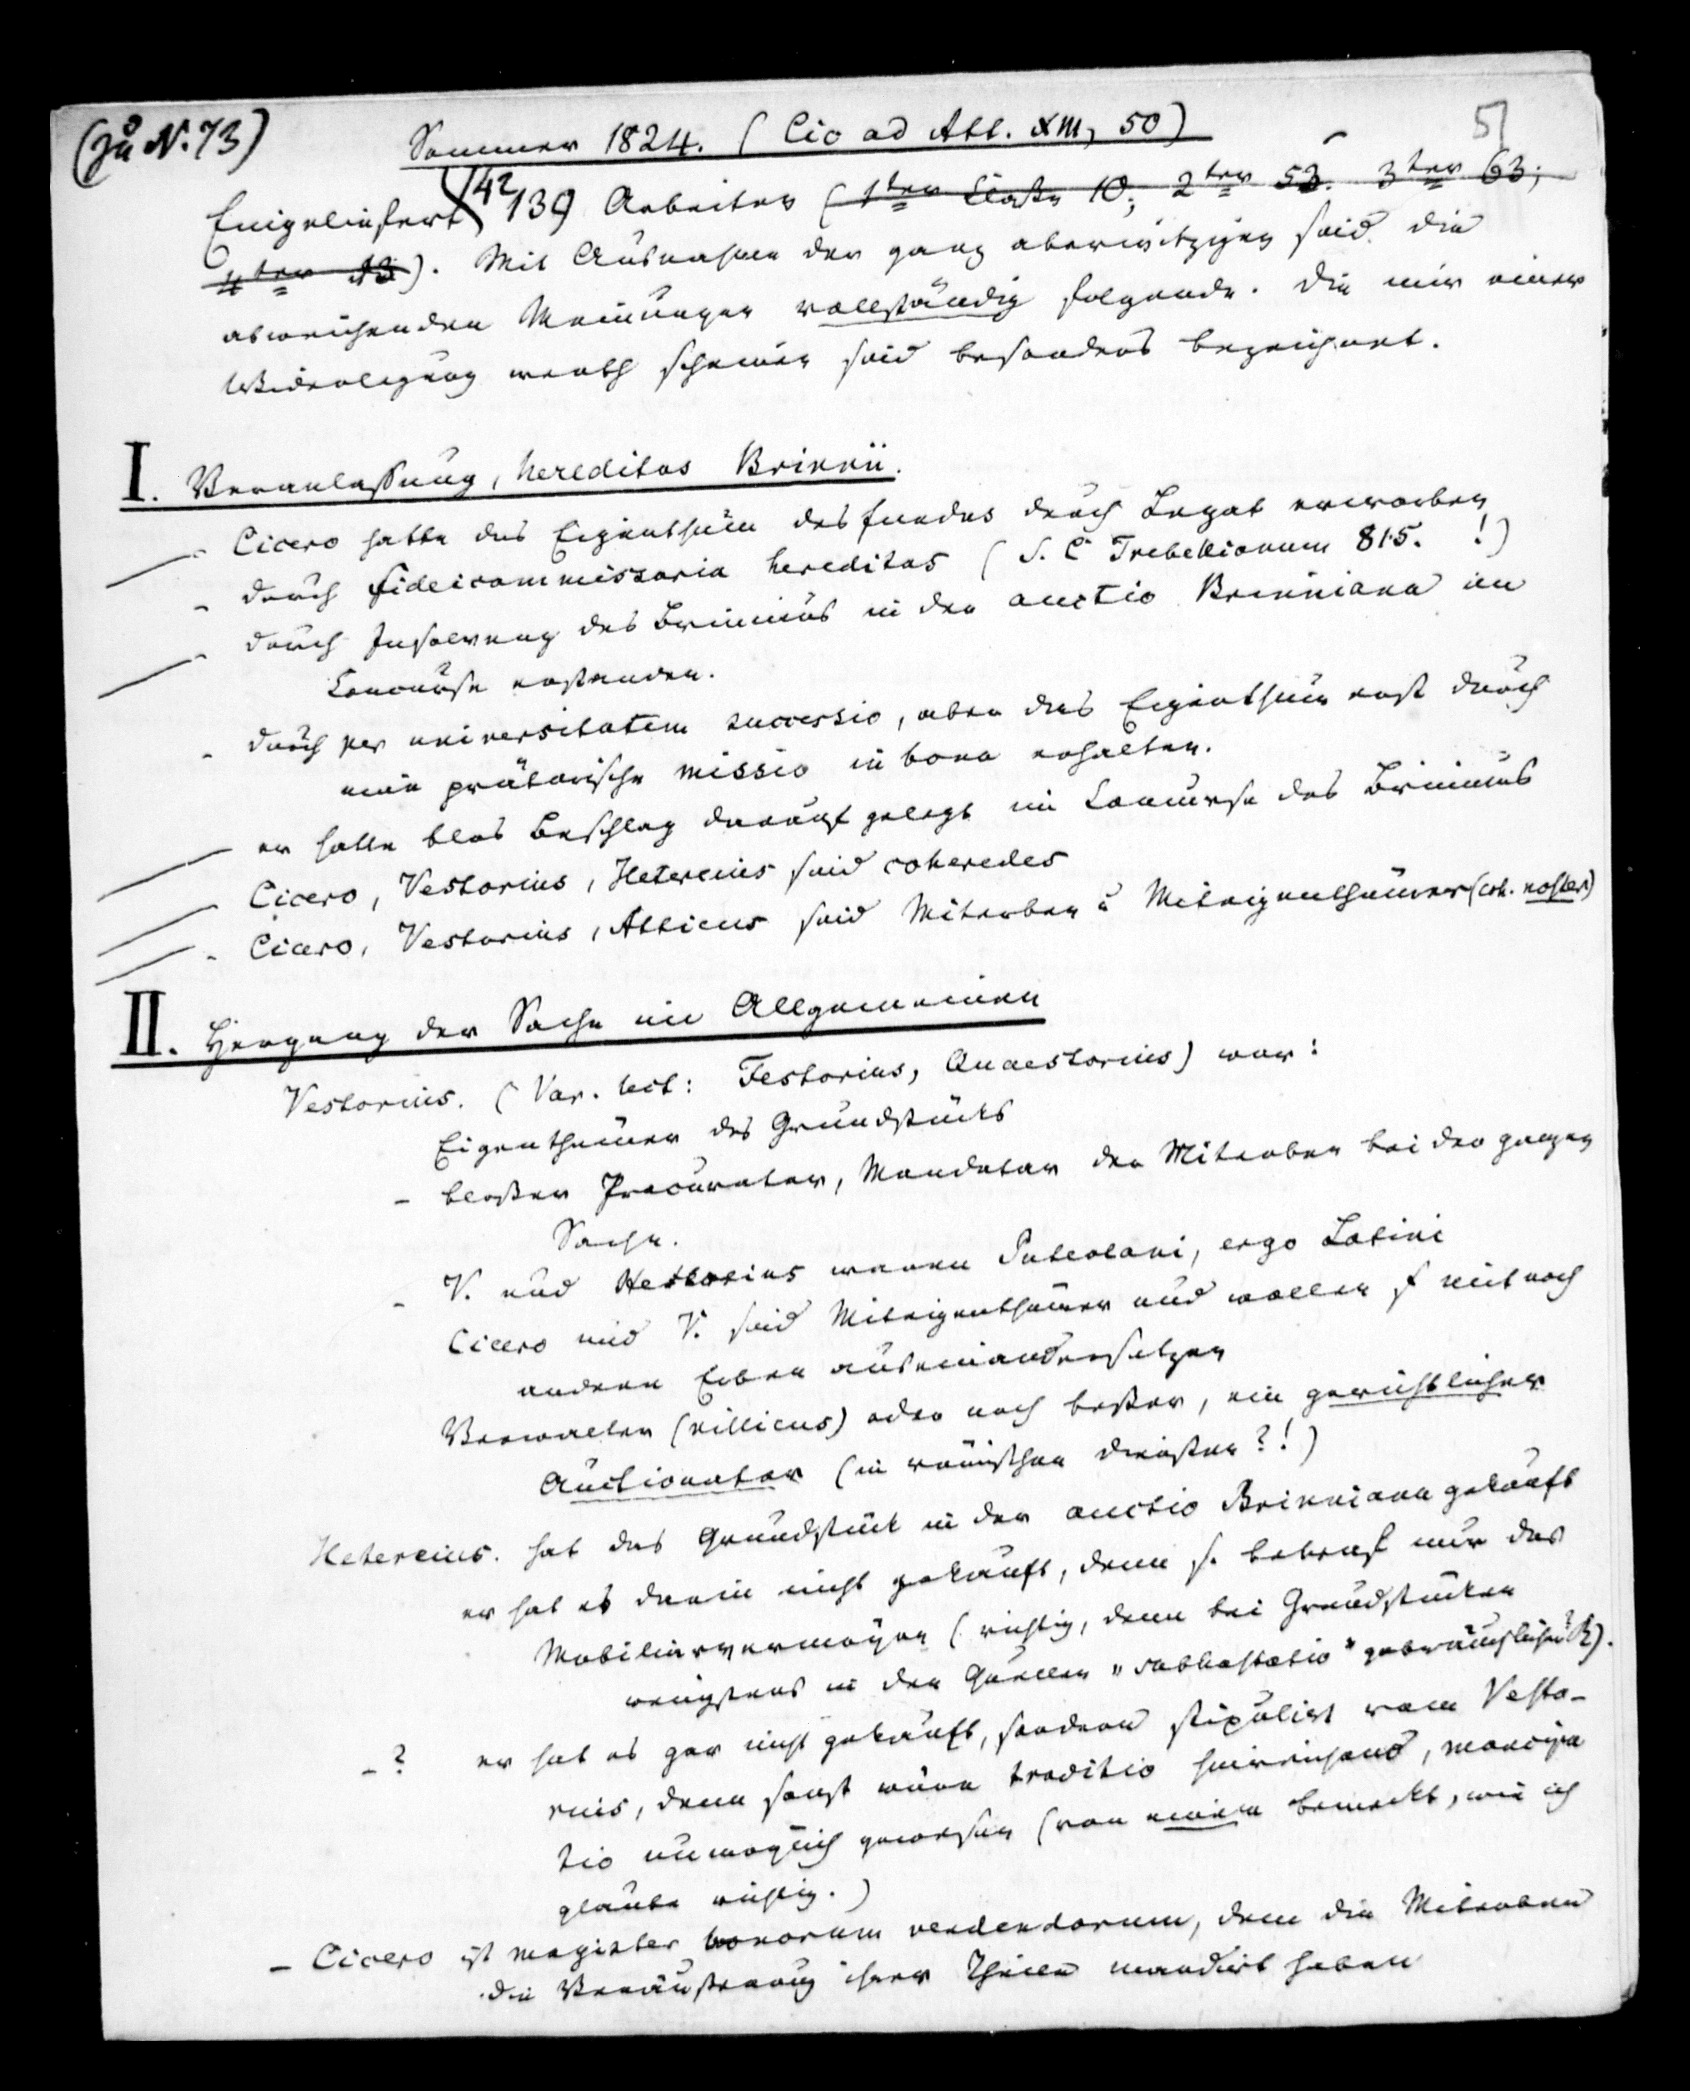 (zu N. 73)
Sommer 1824. (Cic ad Att. XIII, 50)
51
Eingeliefert 142 139 Arbeiten (1ter Classe 10; 2ter 53. 3ter 63;
4ter 13). Mit Ausnahme der ganz aberwitzigen sind die
abweichenden Meinungen vollständig folgende. Die mir einer
Widerlegung werth scheinen sind besonders bezeichnet.
I. Veranlassung, hereditas Brinnii.
- Cicero hatte das Eigenthum des fundus durch Legat erworben
- durch fideicommissaria hereditas (S. C Trebellianum 815. !)
- durch Insolvenz des Brinnius in der auctio Brinniana im
Concurse erstanden.
- durch per universitatem successio, aber das Eigenthum erst durch
eine prätorische missio in bona erhalten.
er hatte blos Beschlag darauf gelegt im Concurse des Brinnius
Cicero, Vestorius, Hetereius sind coheredes
- Cicero, Vestorius, Atticus sind Miterben u Miteigenthümer (coh. noster)
II. Hergang der Sache im Allgemeinen
Vestorius. (Var. lect: Festorius, Quaestorius) war:
Eigenthümer des Grundstücks
- bloßer Procurator, Mandatar der Miterben bei der ganzen
Sache.
- V. und Hetereius waren Puteolani, ergo Latini
Cicero und V. sind Miteigenthümer und wollen s mit noch
andern Erben auseinandersetzen
Verwalter (villicus) oder noch besser, ein gerichtlicher
Auctionator (in römischen Diensten?!)
Hetereius. hat das Grundstück in der auctio Brinniana gekauft
er hat es darin nicht gekauft, denn s. betraf nur das
Mobiliarvermögen (richtig, denn bei Grundstücken
wenigstens in den Quellen "subhastatio" gebräuchlicher? R).
- ? er hat es gar nicht gekauft, sondern stipulirt vom Vesto-
rius, denn sonst wäre traditio hinreichend, mancipa
tio unmöglich gewesen (von einem bemerkt, wie ich
glaube richtig.)
- Cicero ist magister bonorum vendendorum, dem die Miterben
die Veräußerung ihrer Theile mandirt haben